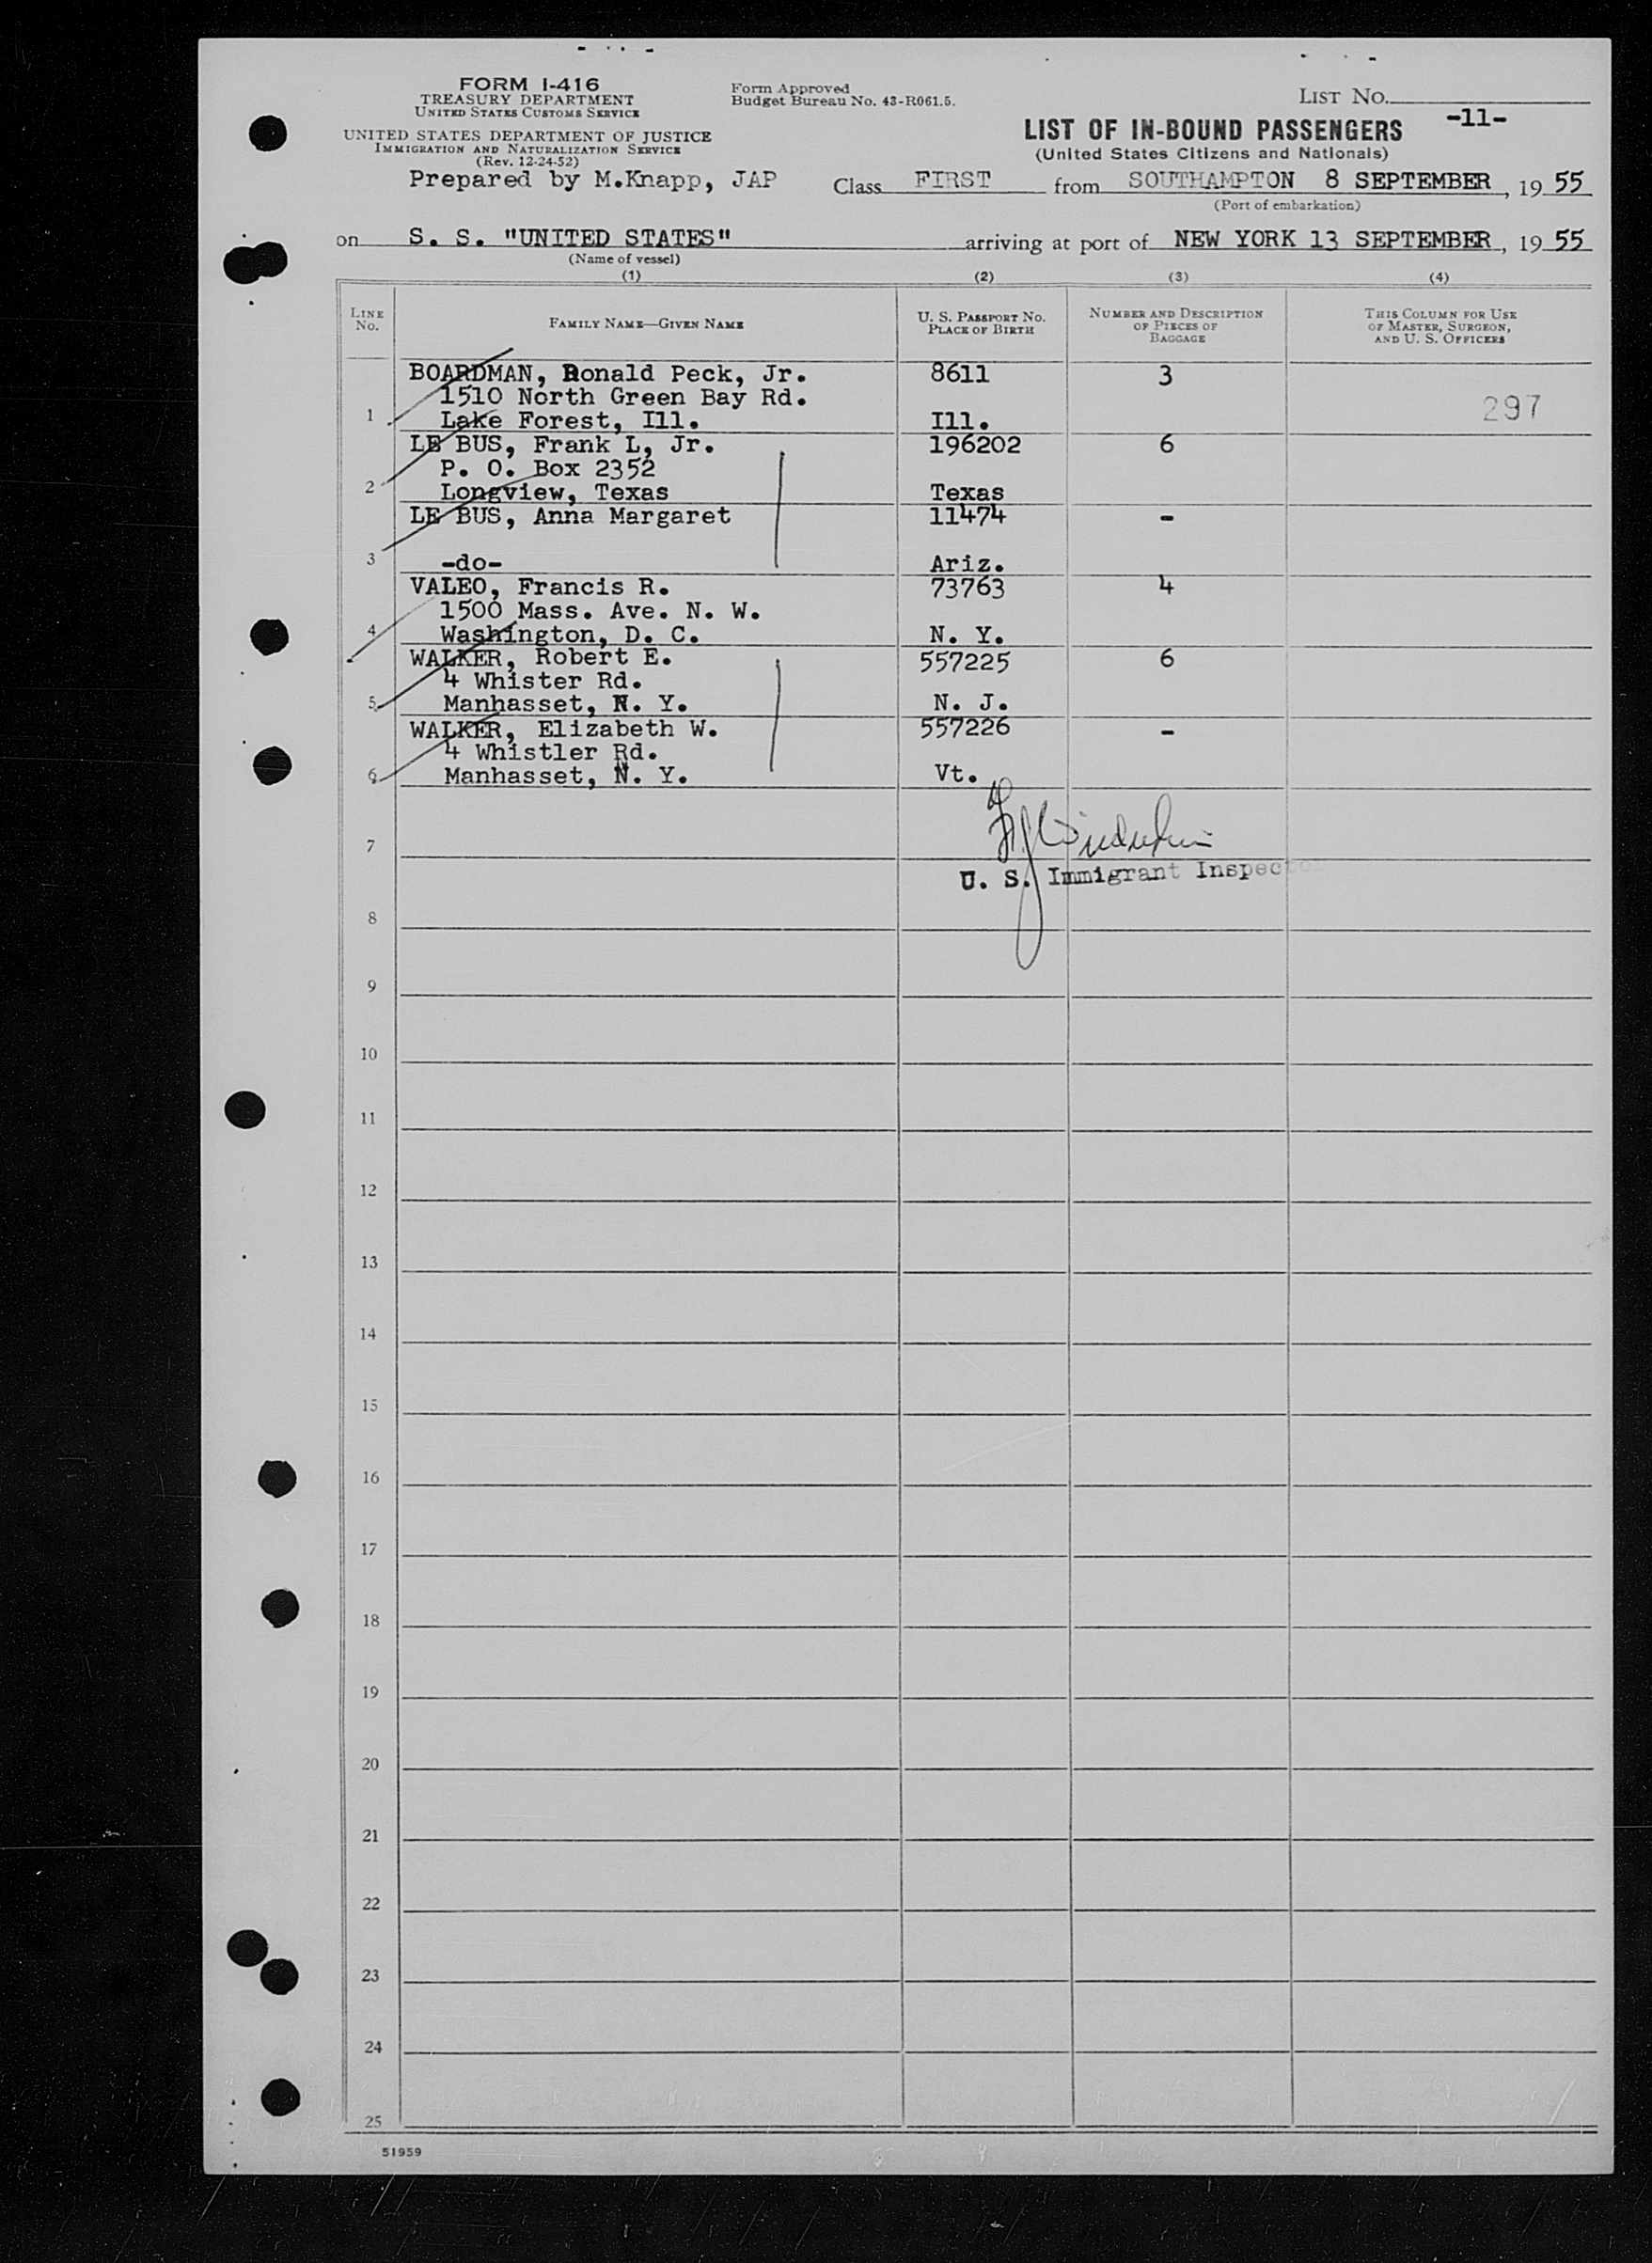 FORM I-416
TREASURY DEPARTMENT
UNITED STATES CUSTOMS SERVICE
UNITED STATES DEPARTMENT OF JUSTICE
IMMIGRATION AND NATURALIZATION SERVICE
(Rev. 12-24-52)
Form Approved
Budget Bureau No. 43-R061.5.
LIST NO.
-11-
LIST OF IN-BOUND PASSENGERS
(United States Citizens and Nationals)
Prepared by M.Knapp, JAP
Class FIRST from SOUTHAMPTON 8 SEPTEMBER, 19 55
(Port of embarkation)
on S. S. "UNITED STATES" arriving at port of NEW YORK 13 SEPTEMBER, 19 55
(Name of vessel)
(1) (2) (3) (4)
LINE No.
FAMILY NAME—GIVEN NAME
U. S. PASSPORT NO.
PLACE OF BIRTH
NUMBER AND DESCRIPTION
OF PIECES OF
BAGGAGE
THIS COLUMN FOR USE
OF MASTER, SURGEON,
AND U. S. OFFICERS
BOARDMAN, Ronald Peck, Jr. 8611 3
1510 North Green Bay Rd.
297
1 Lake Forest, Ill. Ill.
LE BUS, Frank L, Jr. 196202 6
P. O. Box 2352
2 Longview, Texas Texas
LE BUS, Anna Margaret 11474 -
3 -do- Ariz.
VALEO, Francis R. 73763 4
1500 Mass. Ave. N. W.
4 Washington, D. C. N. Y.
WALKER, Robert E. 557225 6
4 Whister Rd.
5 Manhasset, N. Y. N. J.
WALKER, Elizabeth W. 557226 -
4 Whistler Rd.
6 Manhasset, N. Y. Vt.
7
U. S. Immigrant Inspector
8
9
10
11
12
13
14
15
16
17
18
19
20
21
22
23
24
25
51959